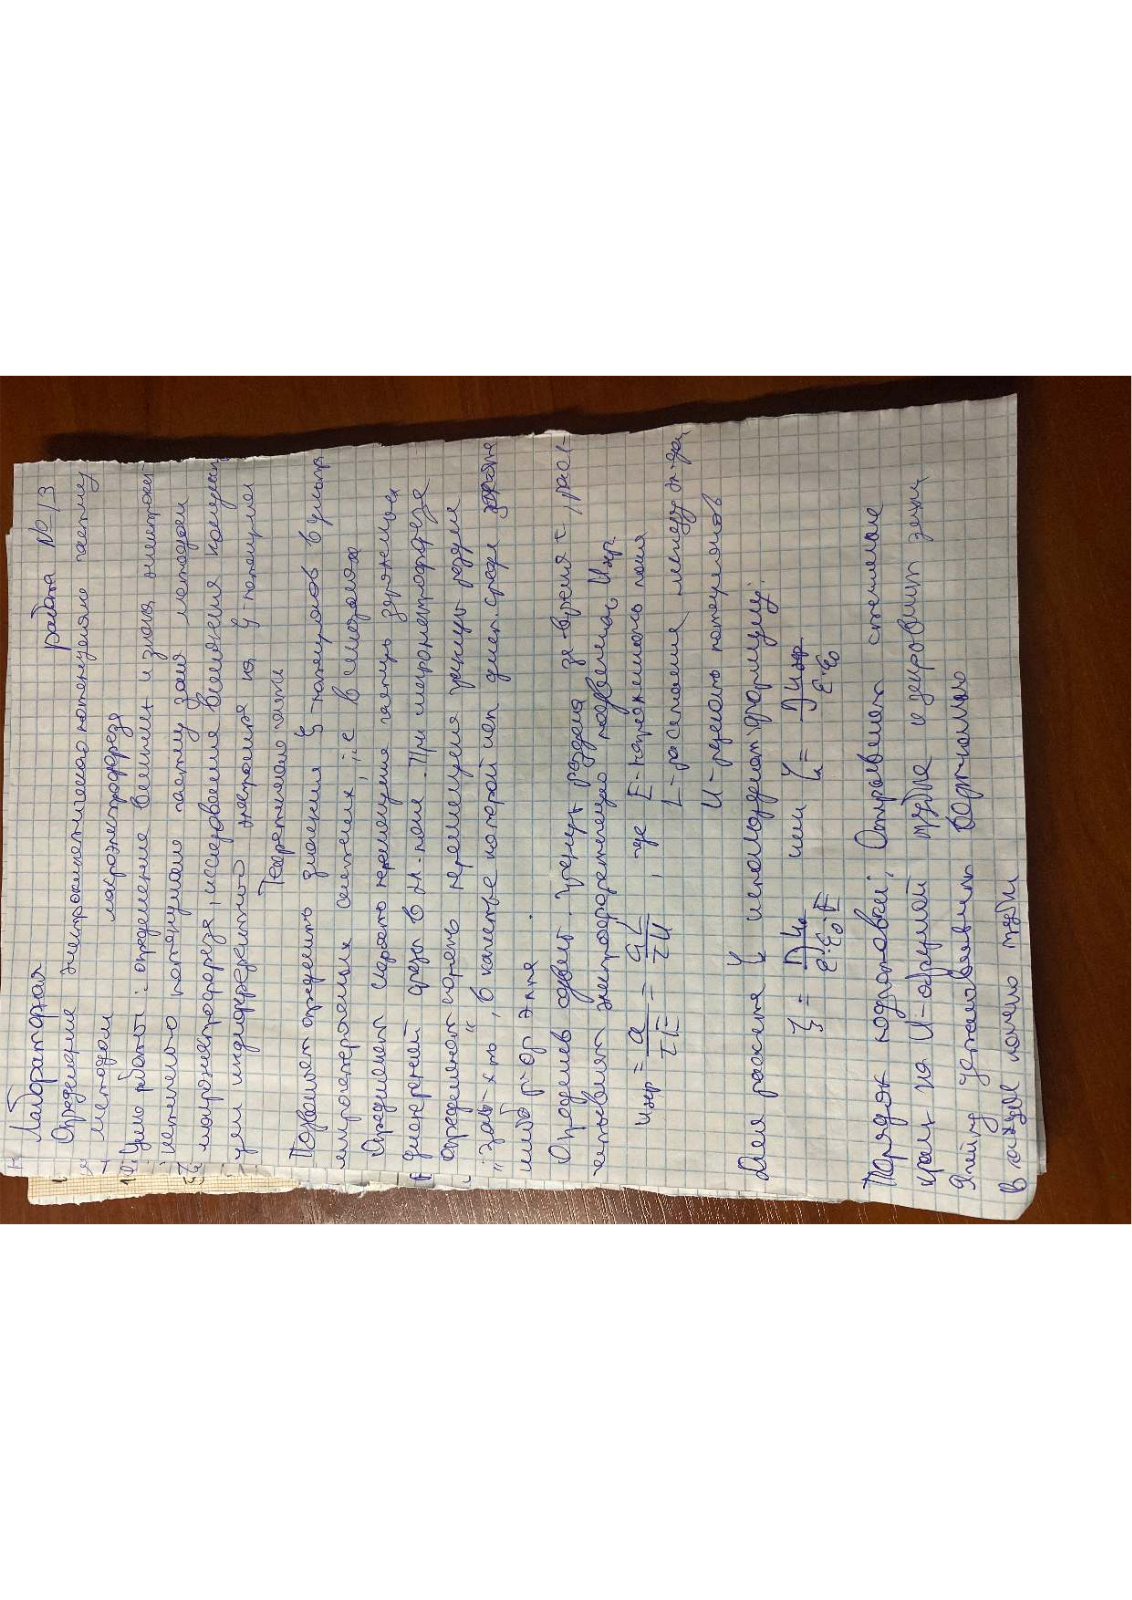 Лабораторная работа № 13
Определение электрокинетического потенциала частиц
методом макроэлектрофореза
Цель работы: определение величины и знака электрокин
потенциала частиц золя методом
макроэлектрофореза, исследование влияния концентр
индифферентного электролита на ζ-потенциал
Теоретическая часть
Позволяет определить значения ζ-потенциалов в
микрогетерогенных системах, и в
Определяют скорость перемещения частиц
дисперсной среды в эл. поле. При макроэлектрофорезе
определяют скорость перемещения границы раздела
"золь - ж-ть", в качестве которой исп дисп. среда
либо р-р эл-та.
Определив сдвиг границы раздела за время τ, рас-
считывают электрофоретическую подвижность Uэф.
Uэф = a / τE = aL / τU , где E - напряженность поля
L - расстояние между эл-дами
U - разность потенциалов
Для расчета ζ используют формулу:
ζ = ηU₀ / ε·ε₀E или ζ = ηUэф / ε·ε₀
Порядок подготовки: Открывают стеклянные
краны на U-образной трубке и
Ячейку устанавливают вертикально
В каждое колено трубки